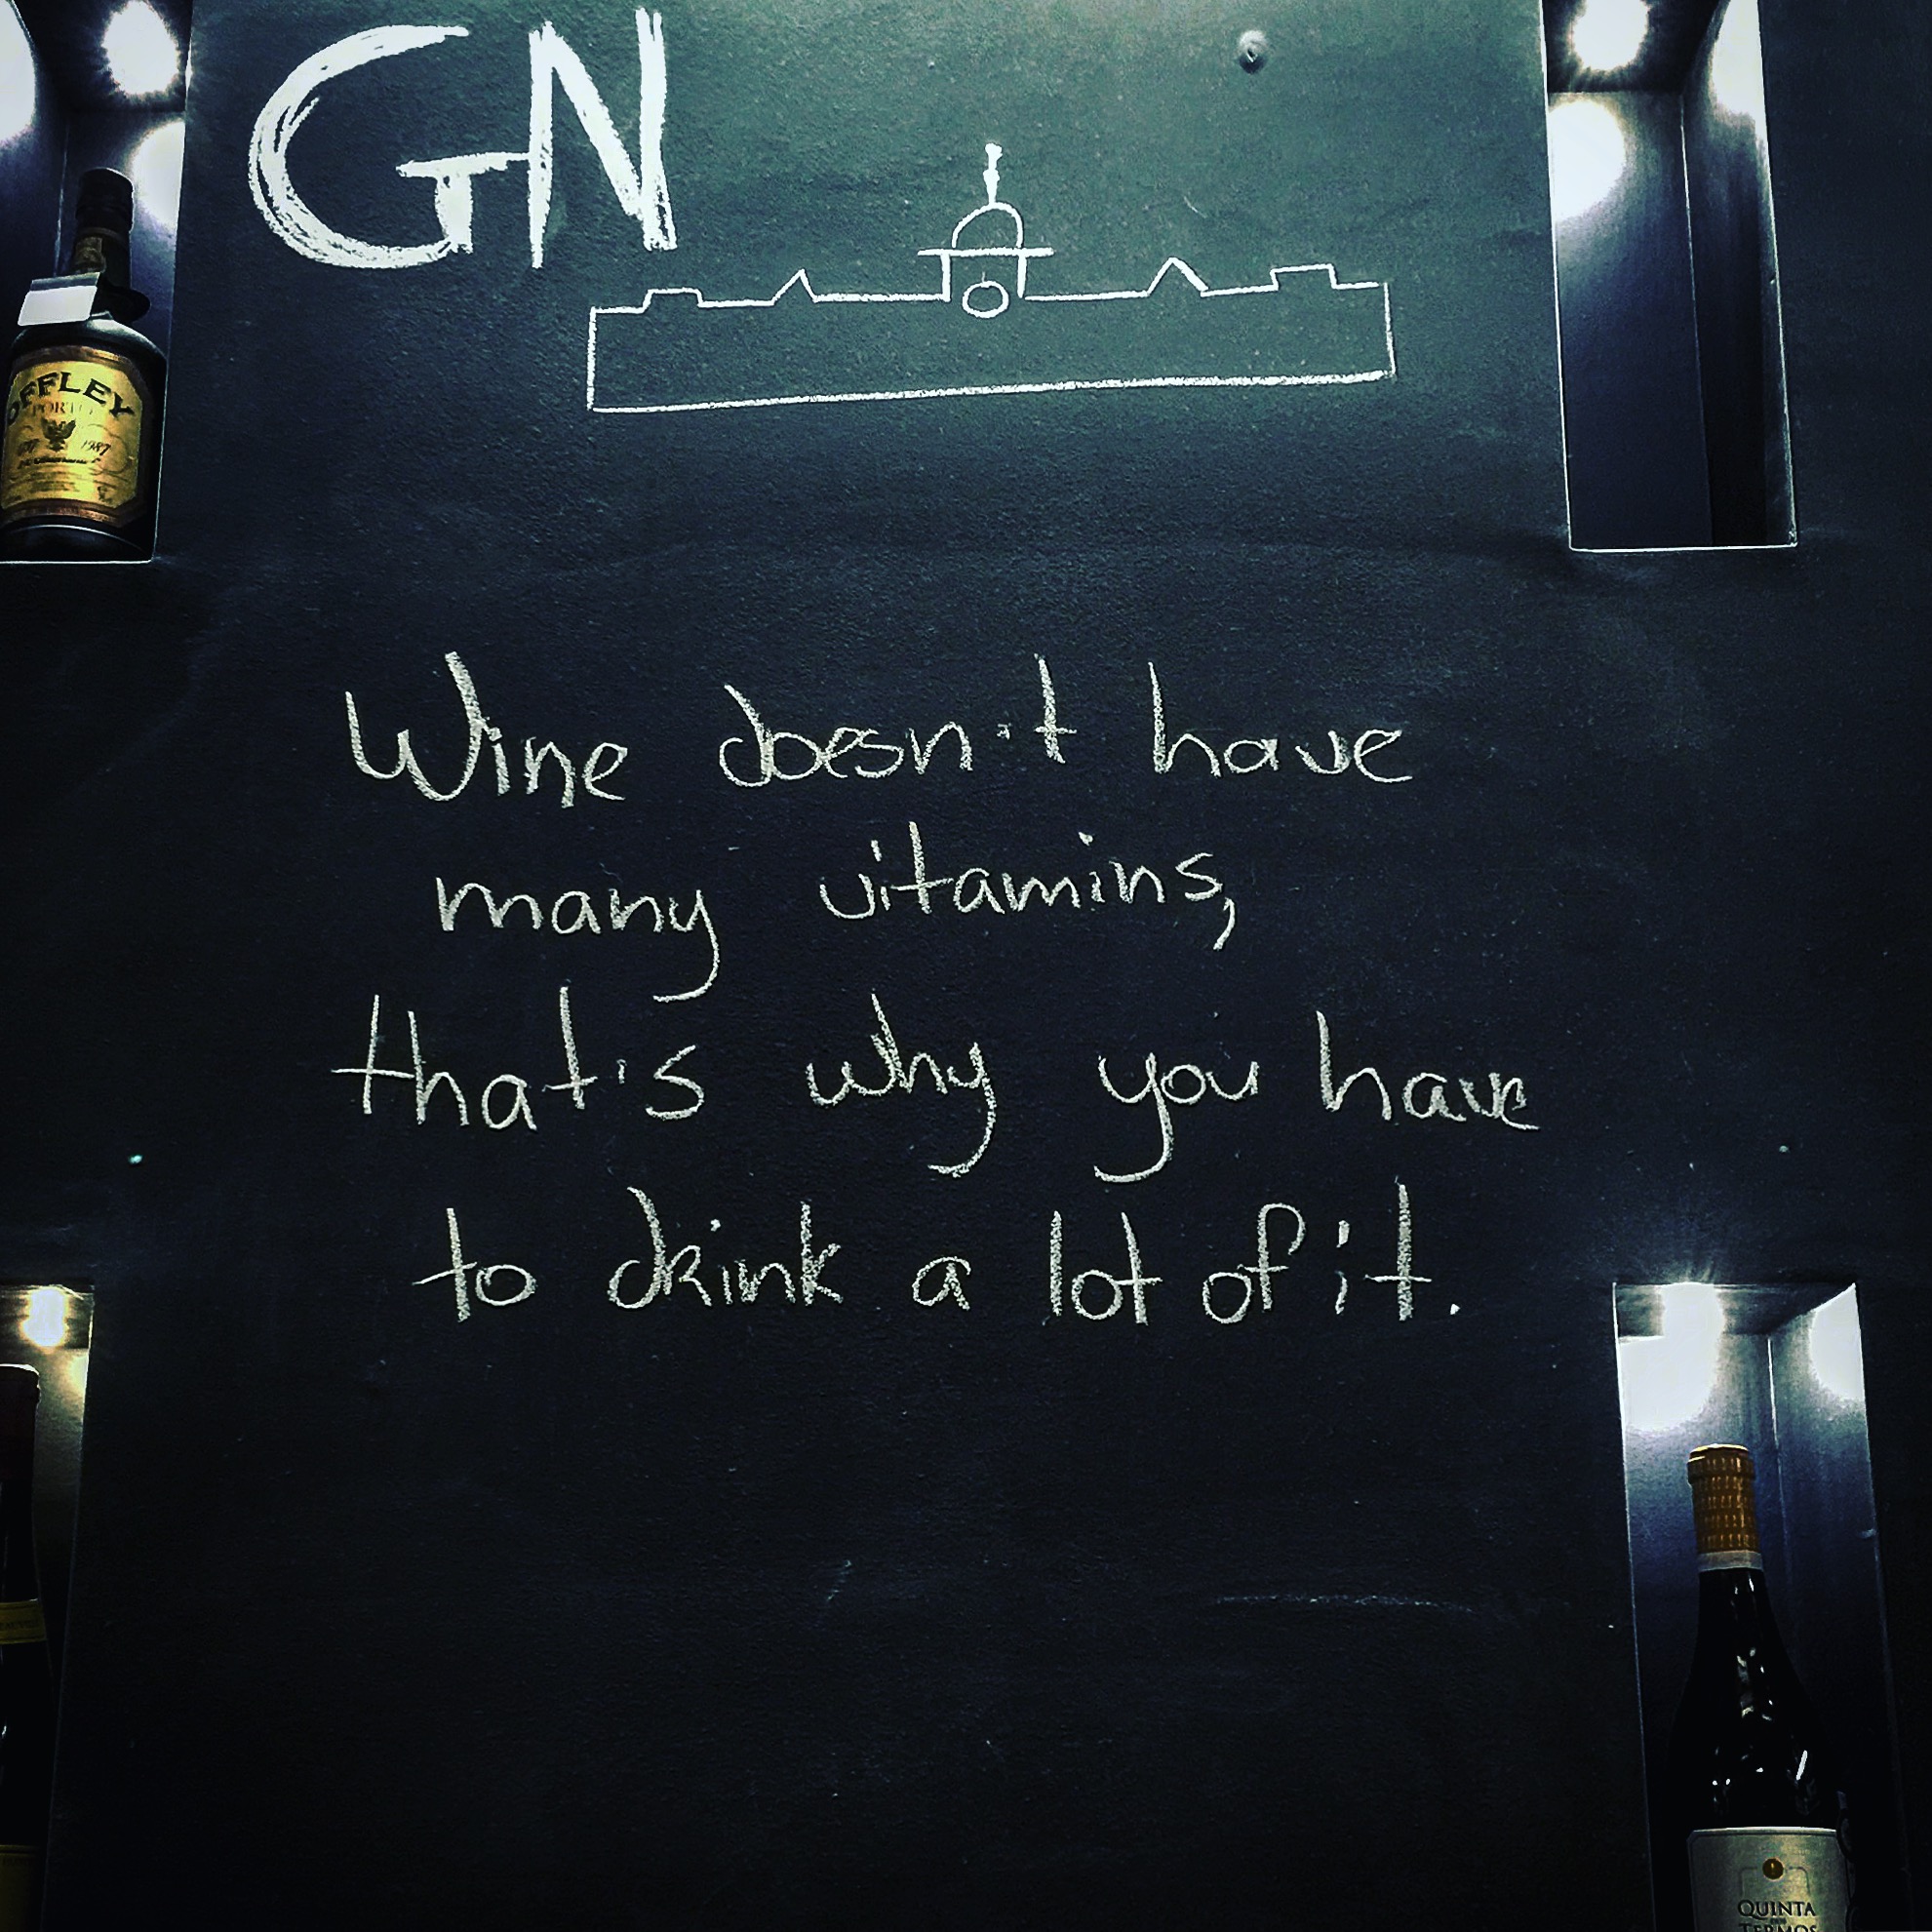 GN
OFFLEY
PORTO
1987
Wine doesn't have
many vitamins,
that's why you have
to drink a lot of it.
QUINTA
TERMOS